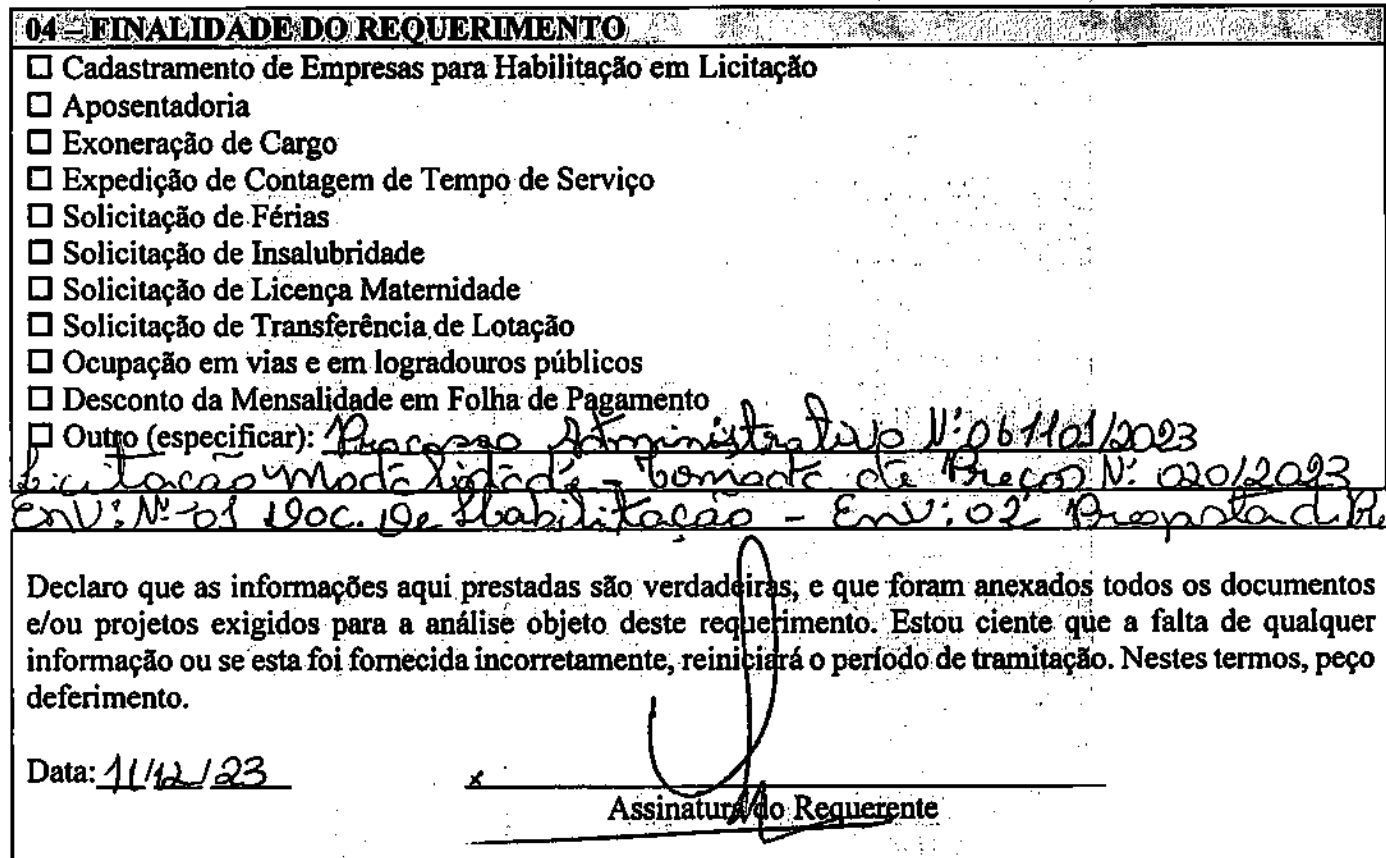 04 – FINALIDADE DO REQUERIMENTO
☐ Cadastramento de Empresas para Habilitação em Licitação
☐ Aposentadoria
☐ Exoneração de Cargo
☐ Expedição de Contagem de Tempo de Serviço
☐ Solicitação de Férias
☐ Solicitação de Insalubridade
☐ Solicitação de Licença Maternidade
☐ Solicitação de Transferência de Lotação
☐ Ocupação em vias e em logradouros públicos
☐ Desconto da Mensalidade em Folha de Pagamento
☐ Outro (especificar): Processo Administrativo Nº 061101/2023
Licitação Modalidade - Tomada de Preços Nº 020/2023
Env: Nº 01 Doc. De Habilitação - Env: 02 Proposta d
Declaro que as informações aqui prestadas são verdadeiras, e que foram anexados todos os documentos
e/ou projetos exigidos para a análise objeto deste requerimento. Estou ciente que a falta de qualquer
informação ou se esta foi fornecida incorretamente, reiniciará o período de tramitação. Nestes termos, peço
deferimento.
Data: 11/12/23 x
Assinatura do Requerente